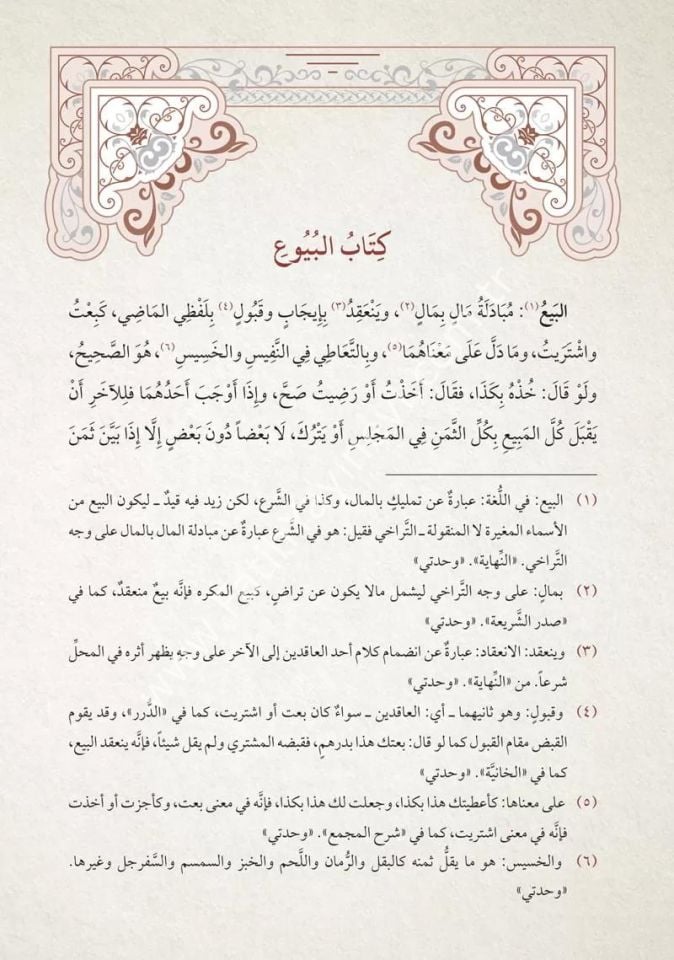 كِتَابُ البُيُوعِ
البَيْعُ(١): مُبَادَلَةُ مَالٍ بِمَالٍ(٢)، ويَنْعَقِدُ(٣) بِإيجَابٍ وقَبُولٍ(٤) بِلَفْظِي المَاضِي، كَبِعْتُ
واشْتَرَيتُ، ومَا دَلَّ عَلَى مَعْنَاهُمَا(٥)، وبِالتَّعَاطِي فِي النَّفِيسِ والخَسِيسِ(٦)، هُوَ الصَّحِيحُ،
ولَوْ قَالَ: خُذْهُ بِكَذَا، فقَالَ: أَخَذْتُ أَوْ رَضِيتُ صَحَّ، وإِذَا أَوْجَبَ أَحَدُهُمَا فلِلآخَرِ أَنْ
يَقْبَلَ كُلَّ المَبِيعِ بِكُلِّ الثَّمَنِ فِي المَجْلِسِ أَوْ يَتْرُكَ، لَا بَعْضاً دُونَ بَعْضٍ إِلَّا إِذَا بَيَّنَ ثَمَنَ
(١) البيع: في اللُّغة: عبارةٌ عن تمليكٍ بالمال، وكذا في الشَّرع، لكن زيد فيه قيدٌ ـ ليكون البيع من
الأسماء المغيرة لا المنقولة ـ التَّراخي فقيل: هو في الشَّرع عبارةٌ عن مبادلة المال بالمال على وجه
التَّراخي. «النِّهاية». «وحدتي»
(٢) بمالٍ: على وجه التَّراخي ليشمل مالا يكون عن تراضٍ، كبيع المكره فإنَّه بيعٌ منعقدٌ، كما في
«صدر الشَّريعة». «وحدتي»
(٣) وينعقد: الانعقاد: عبارةٌ عن انضمام كلام أحد العاقدين إلى الآخر على وجهٍ يظهر أثره في المحلِّ
شرعاً. من «النِّهاية». «وحدتي»
(٤) وقبولٍ: وهو ثانيهما ـ أي: العاقدين ـ سواءٌ كان بعت أو اشتريت، كما في «الدُّرر»، وقد يقوم
القبض مقام القبول كما لو قال: بعتك هذا بدرهمٍ، فقبضه المشتري ولم يقل شيئاً، فإنَّه ينعقد البيع،
كما في «الخانيَّة». «وحدتي»
(٥) على معناها: كأعطيتك هذا بكذا، وجعلت لك هذا بكذا، فإنَّه في معنى بعت، وكأجزت أو أخذت
فإنَّه في معنى اشتريت، كما في «شرح المجمع». «وحدتي»
(٦) والخسيس: هو ما يقلُّ ثمنه كالبقل والرُّمان واللَّحم والخبز والسمسم والسَّفرجل وغيرها.
«وحدتي»